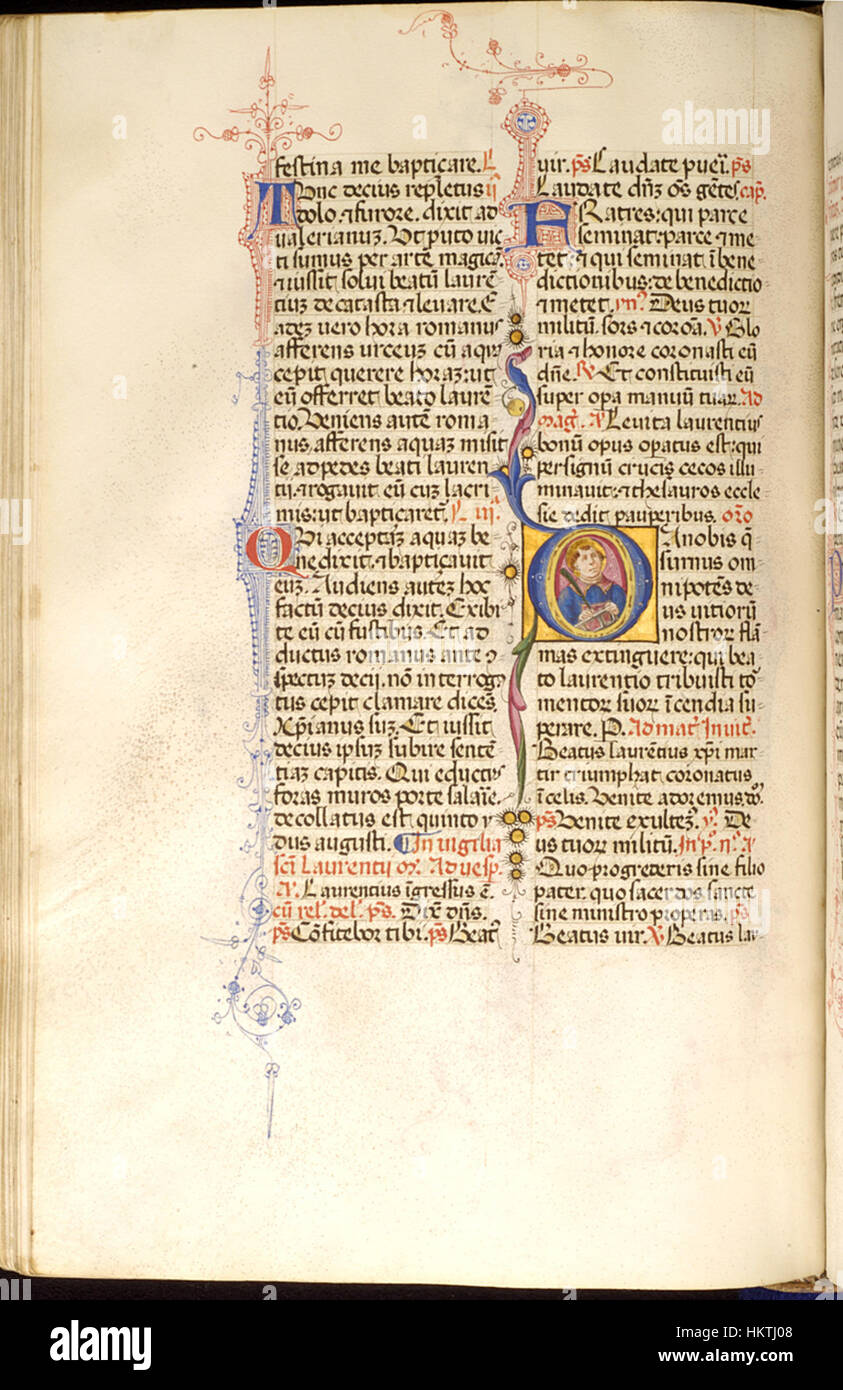 festina me bapticare. L.
Tunc decius repletus ii
dolo ⁊ furore. dixit ad
valerianuȝ. Ut puto vic
ti sumus per artē magicā.
⁊ iussit solui beatū laurē
tiuȝ de catasta ⁊ leuare. E
adeȝ uero hora romanus
afferens urceuȝ cū aqua
cepit querere horaȝ: ut
eū offerret beato laurē
tio. Veniens autē roma
nus afferens aquaȝ misit
se ad pedes beati lauren
tii. ⁊ rogauit eū cuȝ lacri
mis: ut bapticaret. L. iii.
Qui acceptaȝ aquaȝ be
nedixit. ⁊ baptiçauit
euȝ. Audiens auteȝ hoc
factū decius dixit. Exibi
te eū cū fustibus. Et ad
ductus romanus ante ↄ
spectuȝ decii. nō interrog
tus cepit clamare dicēs.
Xp̄ianus suȝ. Et iussit
decius ipsuȝ subire sentē
tiaȝ capitis. Qui eductus
foras muros porte salarie.
decollatus est quinto y
dus augusti. In uigilia
scī Laurentii mr̄. Ad uesp̄.
A. Laurentius īgressus ē.
cū rel. de l. ps. Dix̄ dn̄s.
ps Cōfitebor tibi. ps Beat᾽
uir. ps Laudate pueī. ps
Laudate dn̄ȝ ōs gētes. cap.
FRatres: qui parce
seminat: parce ⁊ me
tet: ⁊ qui seminat ī bene
dictionibus: de benedictio
⁊ metet. ym̄. Deus tuor
militū. sors ⁊ corōa. V Glo
ria ⁊ honore coronasti eū
dn̄e. R Et constituisti eū
super opa manuū tuar. Ad
mag. A Leuita laurentius
bonū opus opatus est: qui
per signū crucis cecos illu
minauit: ⁊ thesauros eccle
sie dedit pauperibus. oro
DA nobis q̄
sumus om
nipotēs de
us uitiorū
nostror flā
mas extinguere: qui bea
to laurentio tribuisti to
mentor suor īcendia su
perare. P. Ad mat. Inuit.
Beatus laurētius xp̄i mar
tir triumphat coronatus
ī celis. Venite adoremus. dō.
ps Venite exulteȝ. y. De
us tuor militū. In p. n. A
Quo progrederis sine filio
pater. quo sacerdos sancte
sine ministro properas. ps
Beatus uir. V Beatus lau
alamy
Image ID: HKTJ08
www.alamy.com